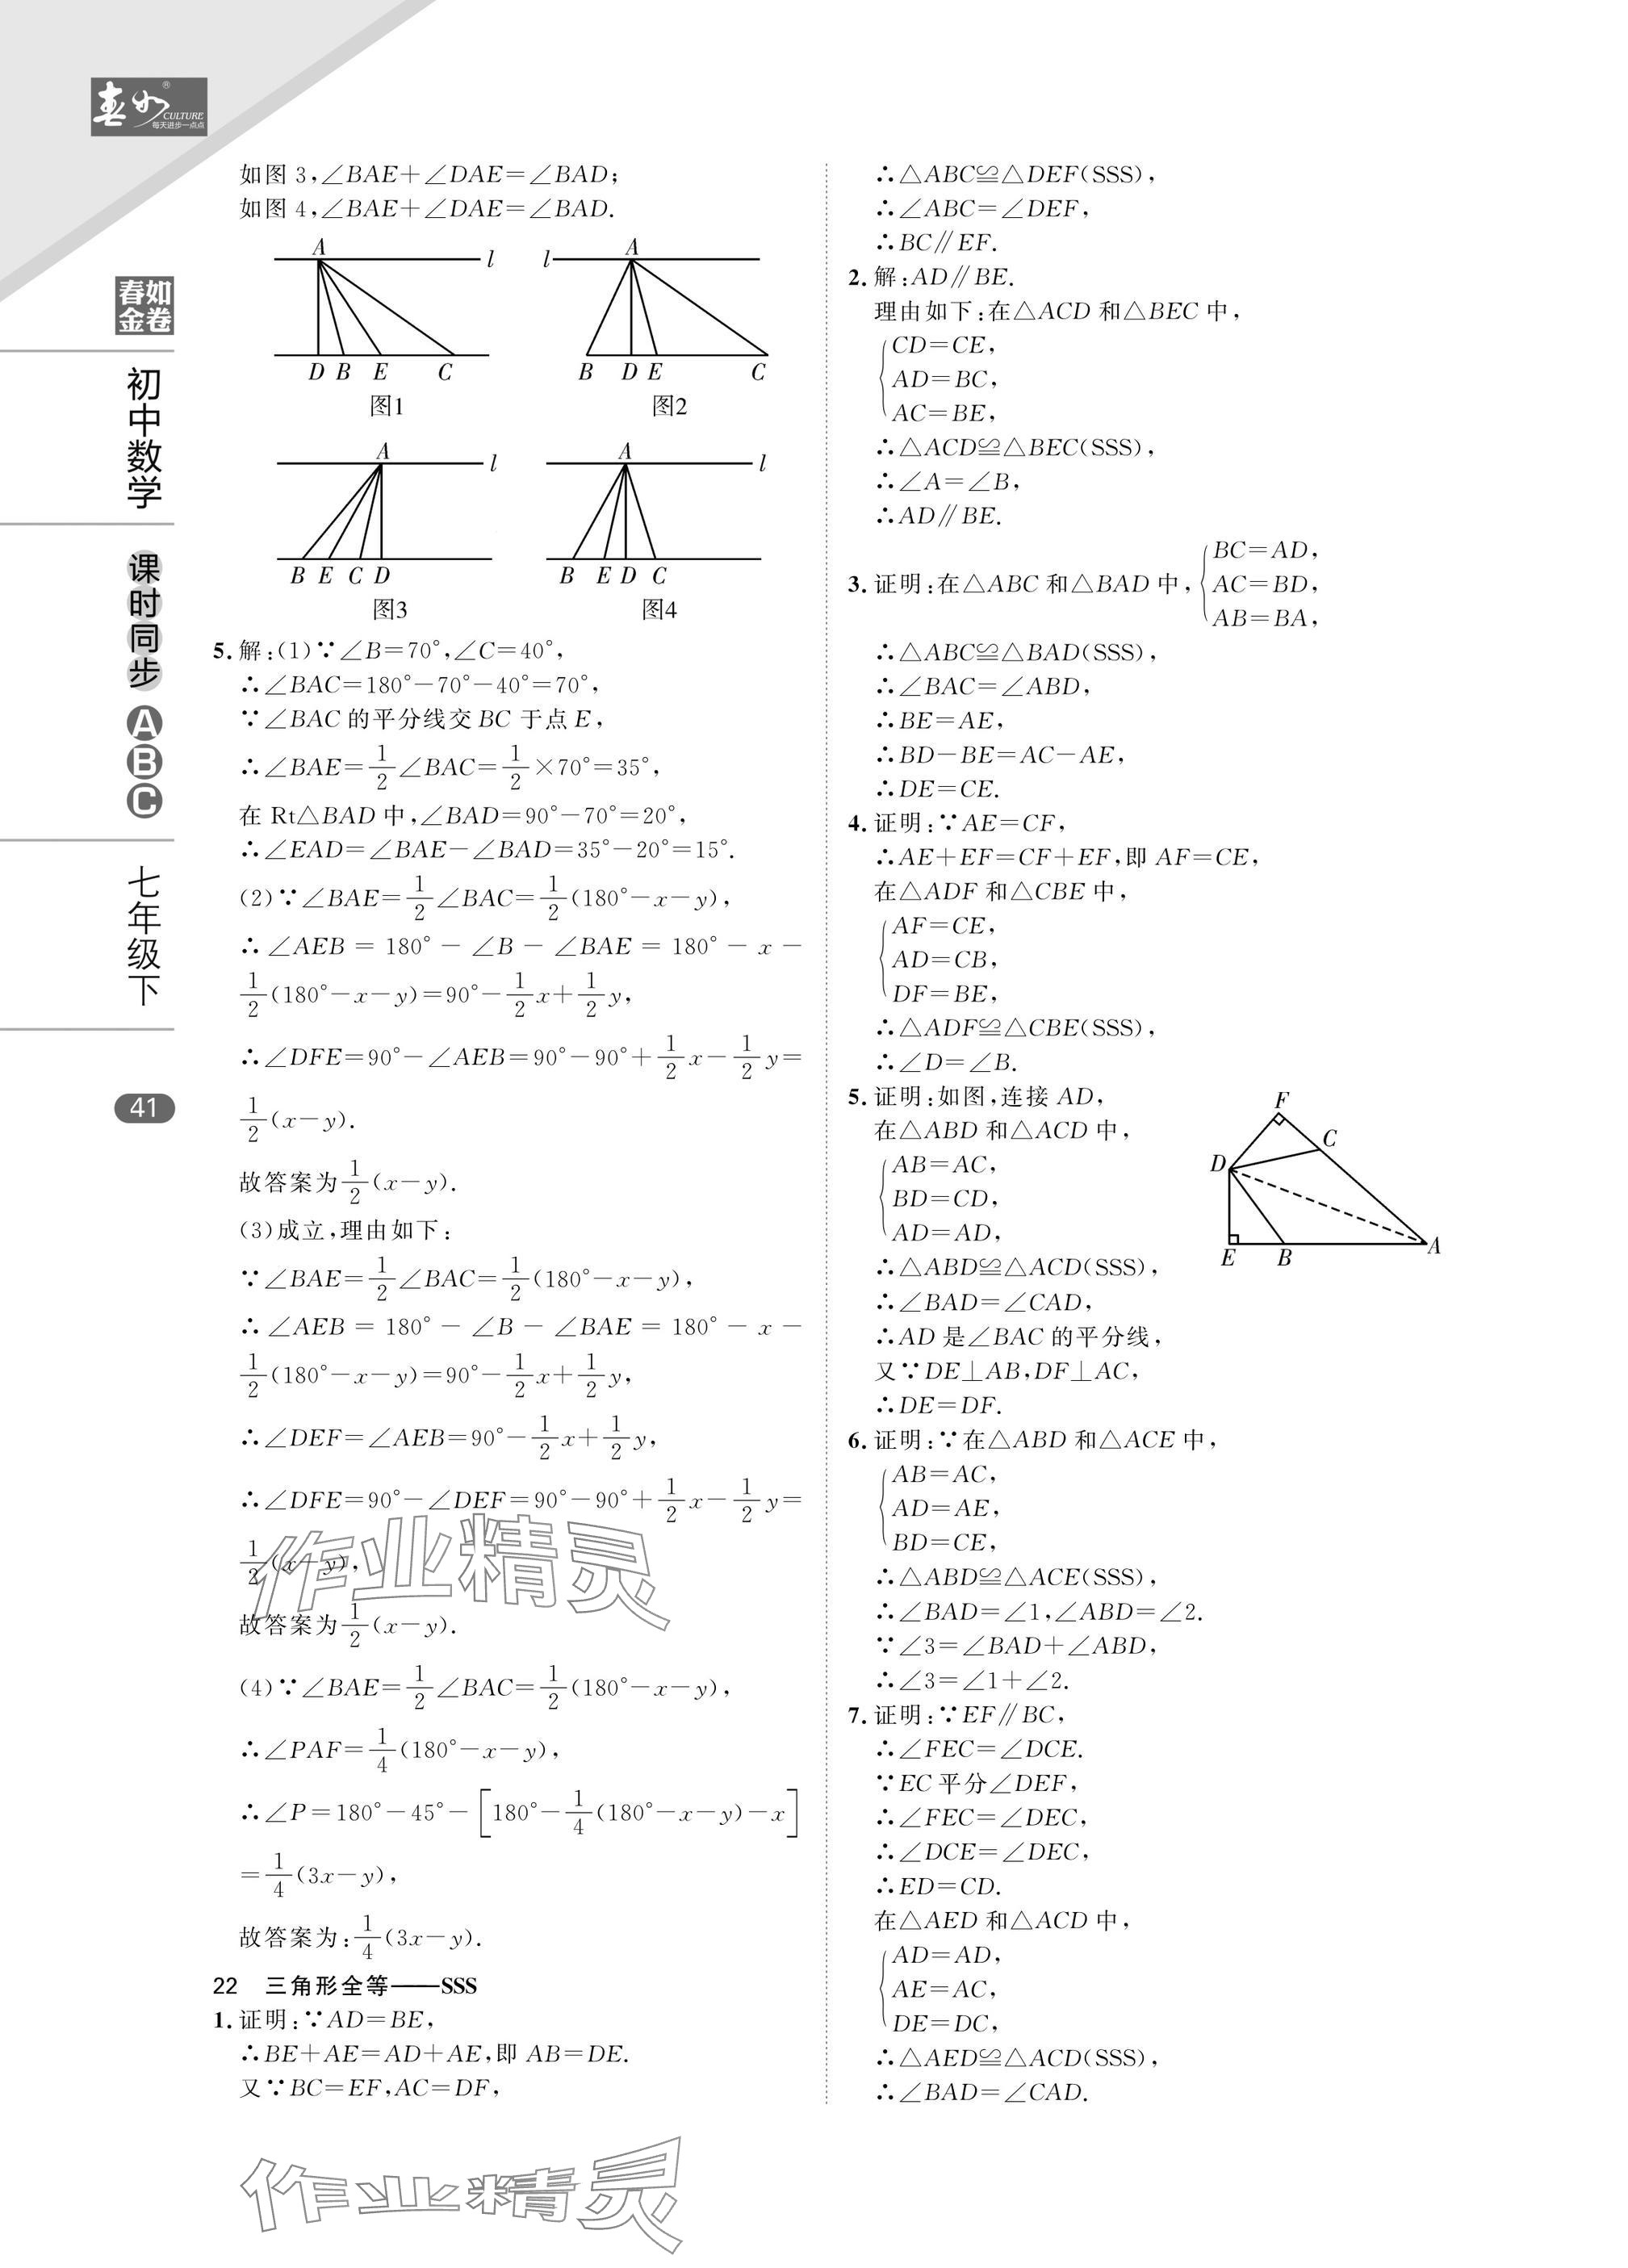 春如®
CULTURE
每天进步一点点
春如
金卷
初中数学
课时同步
A
B
C
七年级下
41
如图 3,∠BAE+∠DAE=∠BAD;
如图 4,∠BAE+∠DAE=∠BAD.
A
l
D B E C
图1
A
l
B D E C
图2
A
l
B E C D
图3
A
l
B E D C
图4
5. 解:(1)∵∠B=70°,∠C=40°,
∴∠BAC=180°-70°-40°=70°,
∵∠BAC 的平分线交 BC 于点 E,
∴∠BAE=1/2∠BAC=1/2×70°=35°,
在 Rt△BAD 中,∠BAD=90°-70°=20°,
∴∠EAD=∠BAE-∠BAD=35°-20°=15°.
(2)∵∠BAE=1/2∠BAC=1/2(180°-x-y),
∴∠AEB=180°-∠B-∠BAE=180°-x-
1/2(180°-x-y)=90°-1/2x+1/2y,
∴∠DFE=90°-∠AEB=90°-90°+1/2x-1/2y=
1/2(x-y).
故答案为1/2(x-y).
(3)成立,理由如下:
∵∠BAE=1/2∠BAC=1/2(180°-x-y),
∴∠AEB=180°-∠B-∠BAE=180°-x-
1/2(180°-x-y)=90°-1/2x+1/2y,
∴∠DEF=∠AEB=90°-1/2x+1/2y,
∴∠DFE=90°-∠DEF=90°-90°+1/2x-1/2y=
1/2(x-y),
故答案为1/2(x-y).
(4)∵∠BAE=1/2∠BAC=1/2(180°-x-y),
∴∠PAF=1/4(180°-x-y),
∴∠P=180°-45°-[180°-1/4(180°-x-y)-x]
=1/4(3x-y),
故答案为:1/4(3x-y).
22 三角形全等——SSS
1. 证明:∵AD=BE,
∴BE+AE=AD+AE,即 AB=DE.
又∵BC=EF,AC=DF,
∴△ABC≌△DEF(SSS),
∴∠ABC=∠DEF,
∴BC∥EF.
2. 解:AD∥BE.
理由如下:在△ACD 和△BEC 中,
CD=CE,
AD=BC,
AC=BE,
∴△ACD≌△BEC(SSS),
∴∠A=∠B,
∴AD∥BE.
3. 证明:在△ABC 和△BAD 中,
BC=AD,
AC=BD,
AB=BA,
∴△ABC≌△BAD(SSS),
∴∠BAC=∠ABD,
∴BE=AE,
∴BD-BE=AC-AE,
∴DE=CE.
4. 证明:∵AE=CF,
∴AE+EF=CF+EF,即 AF=CE,
在△ADF 和△CBE 中,
AF=CE,
AD=CB,
DF=BE,
∴△ADF≌△CBE(SSS),
∴∠D=∠B.
5. 证明:如图,连接 AD,
在△ABD 和△ACD 中,
AB=AC,
BD=CD,
AD=AD,
∴△ABD≌△ACD(SSS),
∴∠BAD=∠CAD,
∴AD 是∠BAC 的平分线,
又∵DE⊥AB,DF⊥AC,
∴DE=DF.
F
C
D
E B A
6. 证明:∵在△ABD 和△ACE 中,
AB=AC,
AD=AE,
BD=CE,
∴△ABD≌△ACE(SSS),
∴∠BAD=∠1,∠ABD=∠2.
∵∠3=∠BAD+∠ABD,
∴∠3=∠1+∠2.
7. 证明:∵EF∥BC,
∴∠FEC=∠DCE.
∵EC 平分∠DEF,
∴∠FEC=∠DEC,
∴∠DCE=∠DEC,
∴ED=CD.
在△AED 和△ACD 中,
AD=AD,
AE=AC,
DE=DC,
∴△AED≌△ACD(SSS),
∴∠BAD=∠CAD.
作业精灵
作业精灵